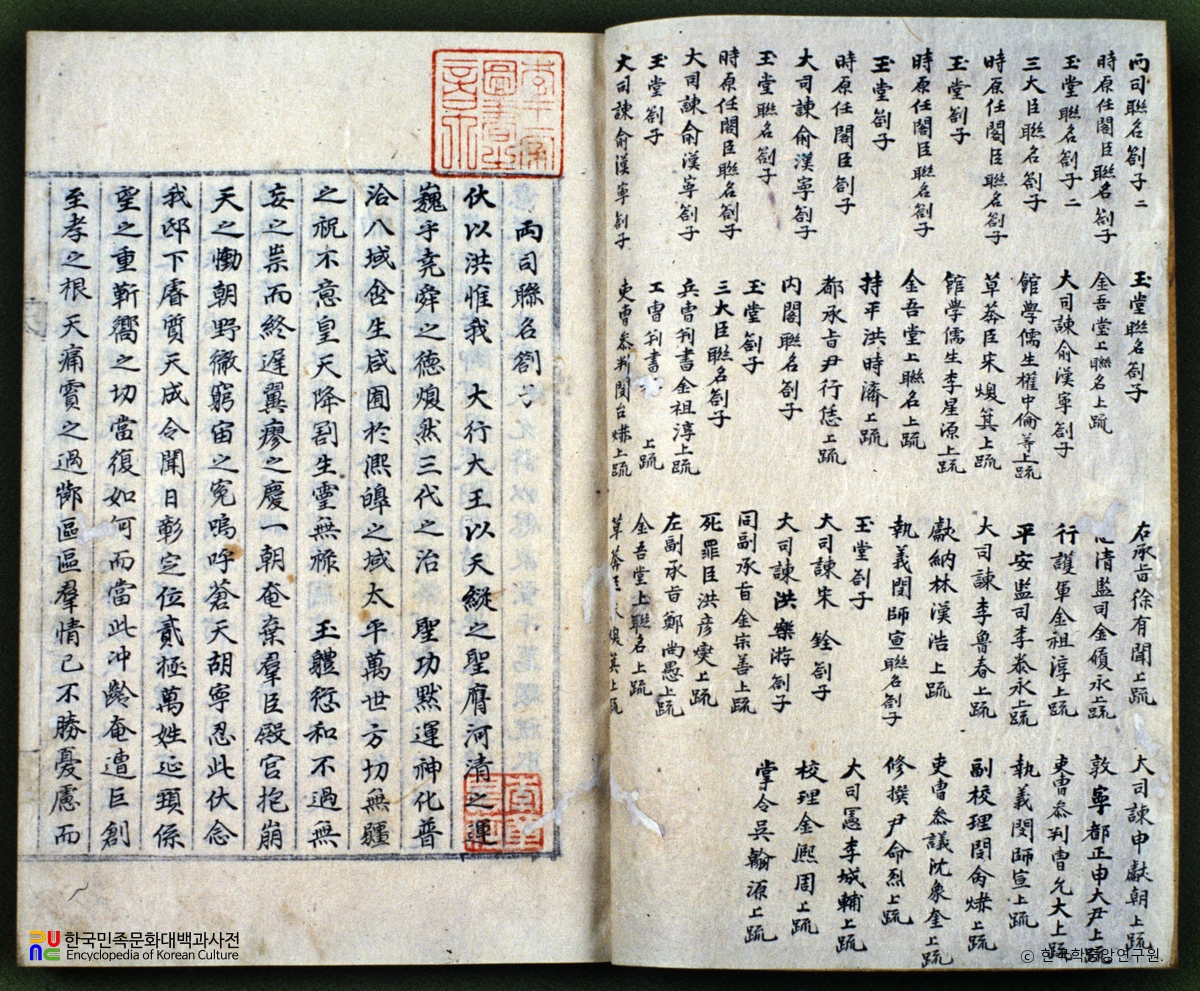 两司聯名劄子二
時原任閣臣聯名劄子
玉堂聯名劄子二
三大臣聯名劄子
時原任閣臣聯名劄子
玉堂劄子
時原任閣臣聯名劄子
玉堂劄子
時原任閣臣劄子
大司諫俞漢寧劄子
玉堂聯名劄子
時原任閣臣聯名劄子
大司諫俞漢寧劄子
玉堂劄子
大司諫俞漢寧劄子
玉堂聯名劄子
金吾堂上聯名上疏
大司諫俞漢寧劄子
館學儒生權中倫等上疏
草莽臣宋煥箕上疏
館學儒生李星源上疏
金吾堂上聯名上疏
持平洪時濟上疏
都承旨尹行恁上疏
內閣聯名劄子
玉堂劄子
三大臣聯名劄子
兵曹判書金祖淳上疏
工曹判書 上疏
吏曹參判閔台爀上疏
右承旨徐有聞上疏
清監司金履永上疏
行護軍金祖淳上疏
平安監司李泰永上疏
大司諫李魯春上疏
獻納林漢浩上疏
執義閔師宣聯名劄子
玉堂劄子
大司諫宋 銓劄子
大司諫洪樂游劄子
同副承旨金宗善上疏
死罪臣洪彦燮上疏
左副承旨鄭尚愚上疏
金吾堂上聯名上疏
草莽臣宋煥箕上疏
大司諫申獻朝上疏
敦寧都正申大尹上疏
吏曹參判曹允大上疏
執義閔師宣上疏
副校理閔命爀上疏
吏曹參議沈象奎上疏
修撰尹命烈上疏
大司憲李城輔上疏
校理金熙周上疏
掌令吳翰源上疏
两司聯名劄子
伏以洪惟我 大行大王以天縱之聖膺河清之運
巍乎堯舜之德煥然三代之治 聖功默運神化普
洽八域含生咸囿於熙皞之域太平萬世方切無疆
之祝不意皇天降割生靈無祿 玉體愆和不過無
妄之祟而終遲翼瘳之慶一朝奄棄羣臣殿宮抱崩
天之慟朝野徹窮宙之寃嗚呼蒼天胡寧忍此伏念
我邸下睿質天成令聞日彰定位貳極萬姓延頸係
望之重蘄嚮之切當復如何而當此冲齡奄遭巨創
至孝之根天痛實之過鄰區區羣情已不勝憂慮而
한국민족문화대백과사전
Encyclopedia of Korean Culture
© 한국학중앙연구원.